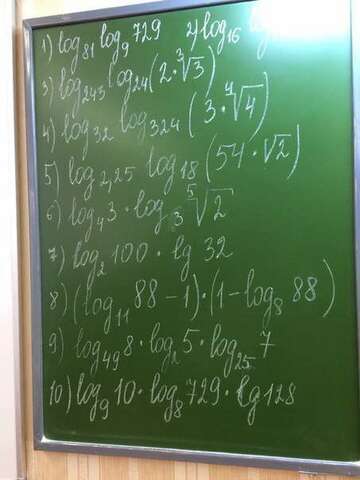 1) log₈₁ log₉ 729 2) log₁₆
3) log₂₄₃ log₂₄ (2·∛3)
4) log₃₂ log₃₂₄ (3·∜4)
5) log₂,₂₅ log₁₈ (54·√2)
6) log₄ 3 · log₃ ⁵√2
7) log₂ 100 · lg 32
8) (log₁₁ 88 − 1)·(1 − log₈ 88)
9) log₄₉ 8 · log₂ 5 · log₂₅ 7
10) log₉ 10 · log₈ 729 · lg 128